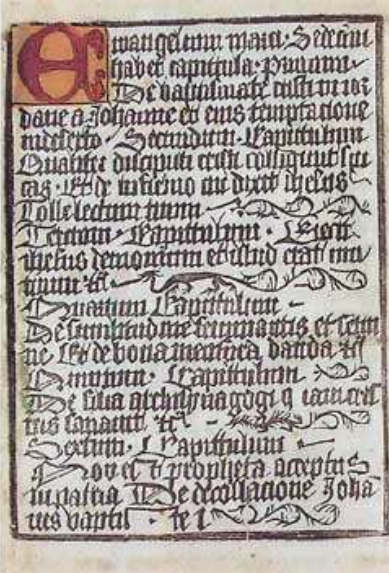 Ewangelium marci · Sedecim
habet capitula · Primum
De baptismate cristi in ior
dane a Johanne et eius temptacione
in deserto · Secundum · Capitulum
Qualiter discipuli cristi colligunt spi
cas · Et de infirmo cui dixit ihesus
Tolle lectum tuum
Tercium · Capittulum · Eiecit
ihesus demonium et istud erat mu
tum
Quartum Capittulum
De similitudine seminantis et semi
ne Et de bona mensura danda
Quintum · Capittulum
De filia archisynagogi q iam
tris sanauit
Sextum · Capittulum
Non est propheta acceptus
in patria De decollacione Joha
nis bapti